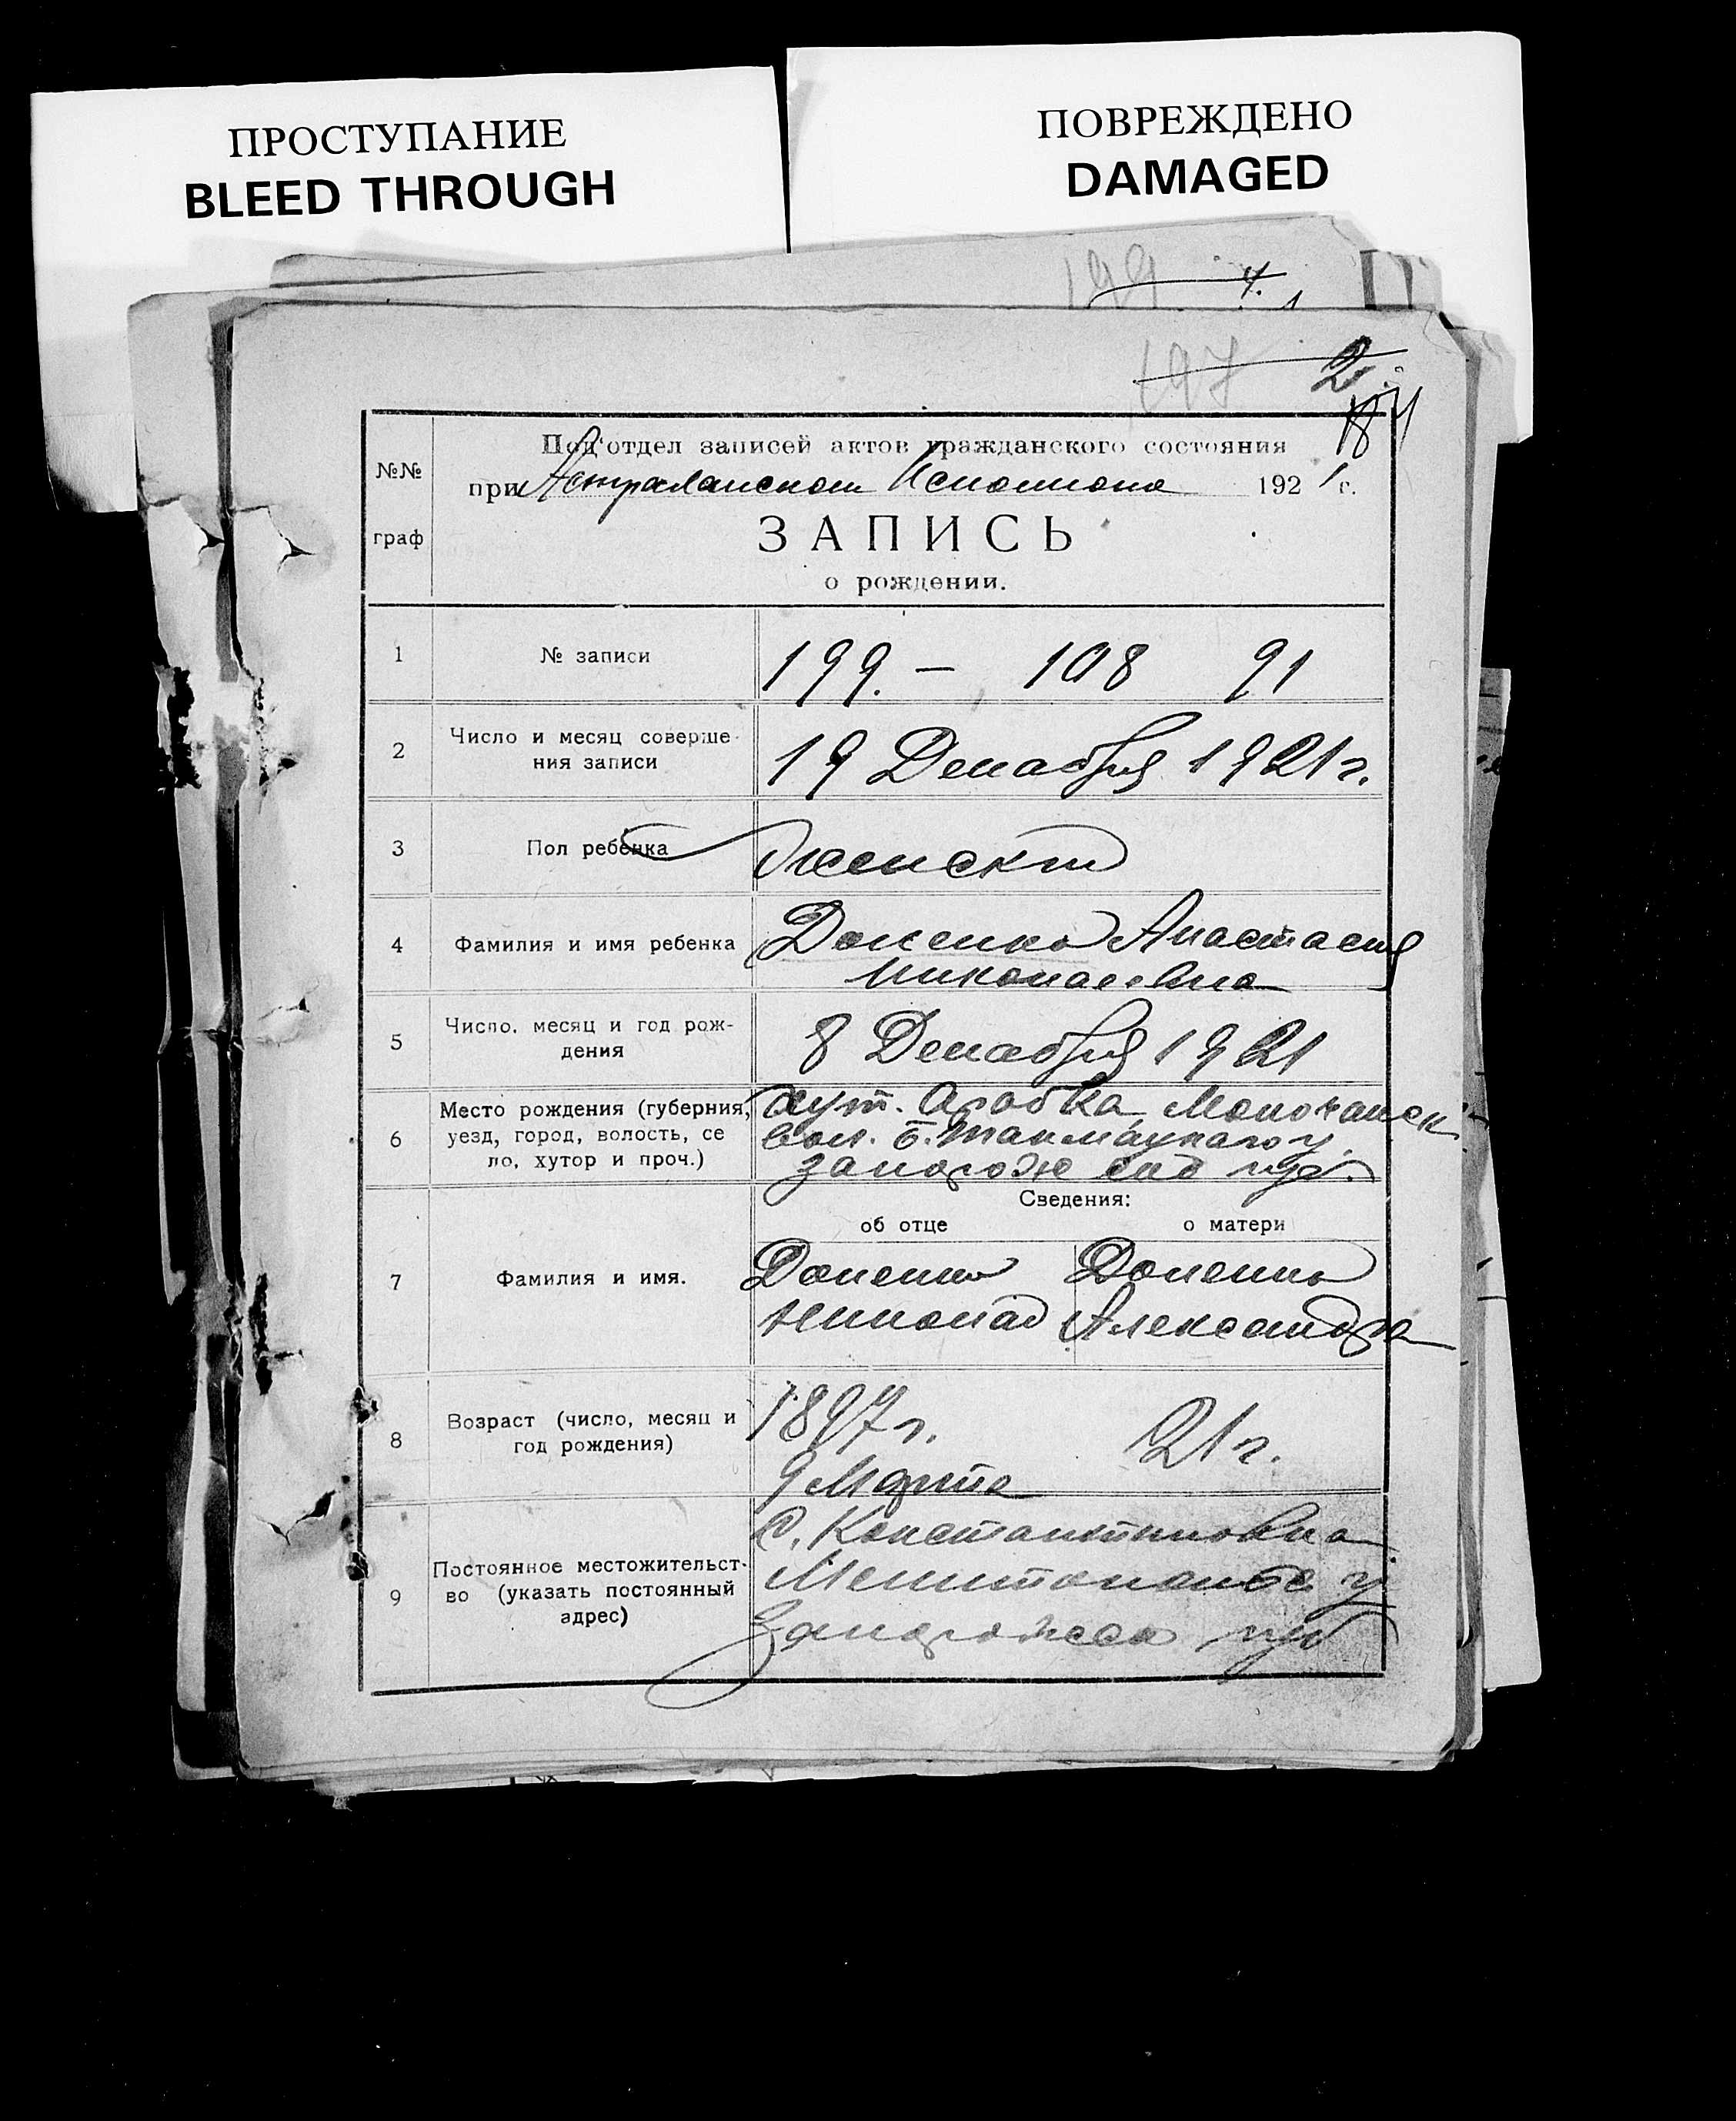 ПРОСТУПАНИЕ
BLEED THROUGH
ПОВРЕЖДЕНО
DAMAGED
199 4.
197 2
№№
граф
Под'отдел записей актов гражданского состояния
при 1921 г.
ЗАПИСЬ
о рождении.
1 № записи 199. — 108 91
2 Число и месяц соверше-
ния записи 19 Декабря 1921 г.
3 Пол ребенка Женский
4 Фамилия и имя ребенка Доненко Анастасия
Николаевна
5 Число, месяц и год рож-
дения 8 Декабря 1921
6 Место рождения (губерния,
уезд, город, волость, се
ло, хутор и проч.)
хут. Молочанск
вол. Б. у.
Запорож губ.
Сведения:
об отце о матери
7 Фамилия и имя. Доненко Доненко
Николай Александра
8 Возраст (число, месяц и
год рождения)
1897 г. 21 г.
9 Марта
9 Постоянное местожительст-
во (указать постоянный
адрес)
С. Константиновка
Мелитопольск у
Запорожск губ